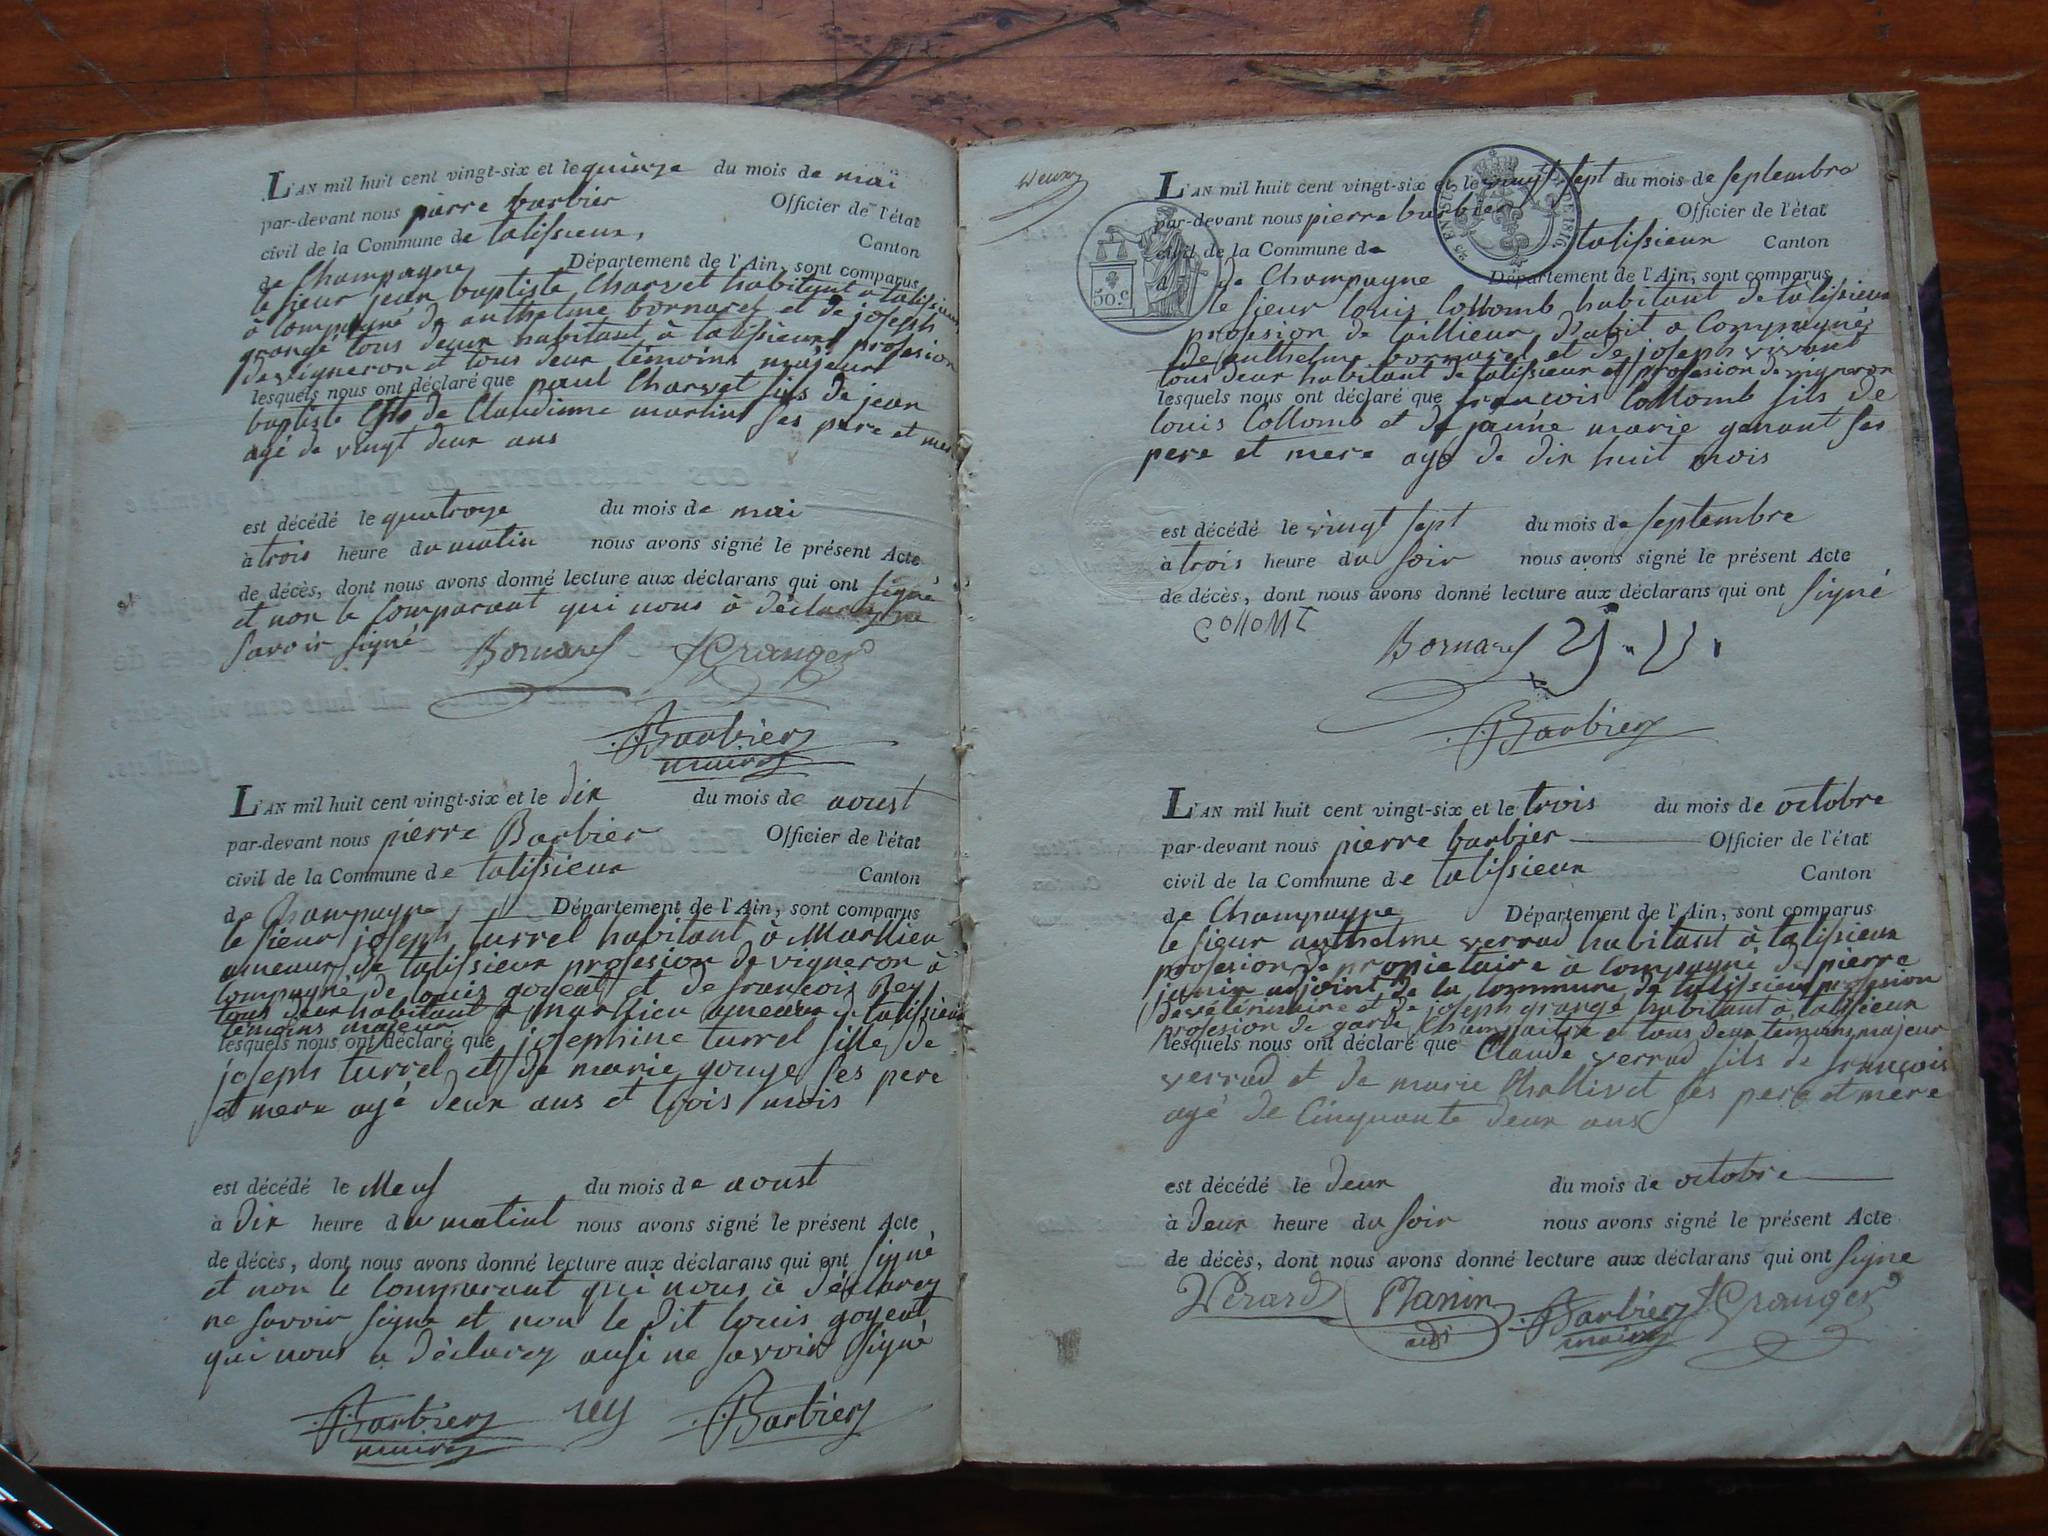 L'AN mil huit cent vingt-six et le quinze du mois de mai
par-devant nous pierre barbier Officier de l'état
civil de la Commune de talissieux, Canton
de Champagne Département de l'Ain, sont comparus
le sieur jean baptiste Charvet habitant a talissieux
à Compagné de anthelme bornarel et de joseph
grangé tous deux habitant à talissieux profesion
de vigneron et tous deux témoins majeurs
lesquels nous ont déclaré que paul Charvet fils de jean
baptiste et de Claudinne martin ses pere et mere
agé de vingt deux ans
est décédé le quatroze du mois de mai
à trois heure du matin nous avons signé le présent Acte
de décès, dont nous avons donné lecture aux déclarans qui ont signé
et non le Comparant qui nous à déclarez ne
savoir signé Bornarel JGranger
Barbier
maire
L'AN mil huit cent vingt-six et le dix du mois de aoust
par-devant nous pierre Barbier Officier de l'état
civil de la Commune de talissieux Canton
de Champagne Département de l'Ain, sont comparus
le sieur joseph turrel habitant à Marlieu
ameaux de talissieux profesion de vigneron à
Compagné de louis goyent et de françois Rey
tous deux habitant a marlieu ameaux de talissieux
témoins majeur
lesquels nous ont déclaré que josephine turrel fille de
joseph turrel et de marie gouye ses pere
et mere agé deux ans et trois mois
est décédé le Neuf du mois de aoust
à dix heure du matint nous avons signé le présent Acte
de décès, dont nous avons donné lecture aux déclarans qui ont signé
et non le Comparant qui nous à déclarez
ne savoir signe et non le dit louis goyent
qui nous a déclarez ausi ne savoir signé
Barbier rey Barbier
maire
L'AN mil huit cent vingt-six et le vingt sept du mois de septembre
par-devant nous pierre barbier Officier de l'état
civil de la Commune de talissieux Canton
de Champagne Département de l'Ain, sont comparus
50.c
le sieur louis Collomb habitant de talissieux
profesion de taillieur d'abit a Compagné
de anthelme bornarel et de joseph vivant
tous deux habitant de talissieux et profesion de vigneron
lesquels nous ont déclaré que françois Collomb fils de
louis Collomb et de jaúne marie genant ses
pere et mere agé de dix huit mois
est décédé le vingt sept du mois de septembre
à trois heure du soir nous avons signé le présent Acte
de décès, dont nous avons donné lecture aux déclarans qui ont signé
Bornarel
Barbier
L'AN mil huit cent vingt-six et le trois du mois de octobre
par-devant nous pierre barbier Officier de l'état
civil de la Commune de talissieux Canton
de Champagne Département de l'Ain, sont comparus
le sieur anthelme verrad habitant à talissieux
profesion de propietaire à Compagné de pierre
janin adjoint de la Commune de talissieux profesion
de vétérinaire et de joseph grangé habitant à talissieux
profesion de garde Champaitre et tous deux temoins majeur
lesquels nous ont déclaré que Claude verrad fils de françois
verrad et de marie Challivet ses pere et mere
agé de Cinquante deux ans
est décédé le deux du mois de octobre
à deux heure du soir nous avons signé le présent Acte
de décès, dont nous avons donné lecture aux déclarans qui ont signe
Vérard PJanin Barbier JGranger
adj maire